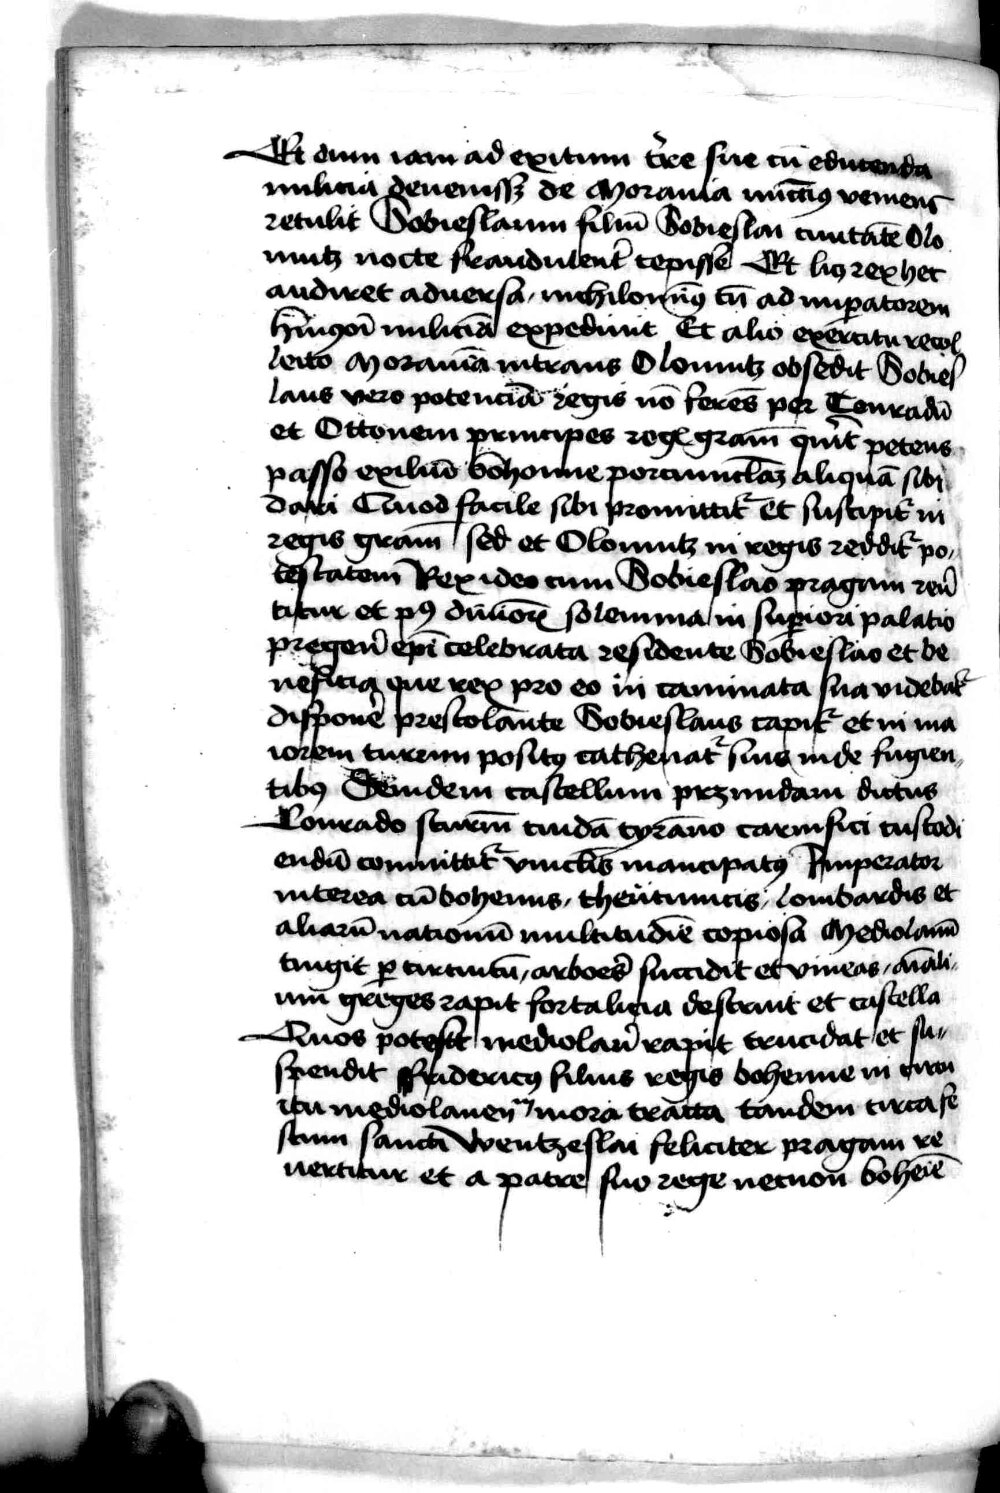 Et dum iam ad exitum t̄re sue cū educenda
milicia deuenissꝫ de Morauia nūcciꝰ veniens
retulit Sobieslaum filiū Sobieslai ciuitatē Olo
mutz nocte fraudulent̄ cepisse Et licꝫ rex hec
audiret aduersa, nichilominꝰ tn̄ ad imꝑatorem
militiā expediuit Et alio exercitu recol
lecto Morauiā intrans Olomutz obsedit Sobies
laus vero potenciā regis nō ferēs per Conradū
et Ottonem principes regꝭ grām querit petens
passo exiliū bohemie porciunclaꝫ aliquā sibi
dari Quod facile sibi promittitᷣ et suscipitᷣ in
regis grām sed et Olomutz in regis redditᷣ po,
testatem Rex ideo cum Sobieslao pragam reū
titur et pꝰ solemnia in suꝑiori palatio
pregeñ ep̄i celebrata residente Sobieslao et be
neficia que rex pro eo in caminata sua videbatᷣ
disponē prestolante Sobieslaus capitᷣ et in ma
iorem turrim positꝰ cathenatᷣ suis inde fugien,
tibꝰ Deindem castellum przimdam dictus
Conrado sturm̄ cuidā tyrāno carnifici custodi
endū committitᷣ vinclis mancipatꝰ Imperator
interea cū bohemis, theutunicis, lombardis et
aliarū nationū multitudīe copiosa Mediolanū
cingit ꝑ circuitū, arbores succidit et vineas, aīali,
um greges rapit fortalicia destruit et castella
Quos potest mediolañ rapit trucidat et su,,
spendit Fridericꝰ filius regis bohemie in circu
itu mediolanen̄ mora tracta tandem circa fe
stum sancti Wentzeslai feliciter pragam re
uertitur et a patre suo rege necnon bohēie